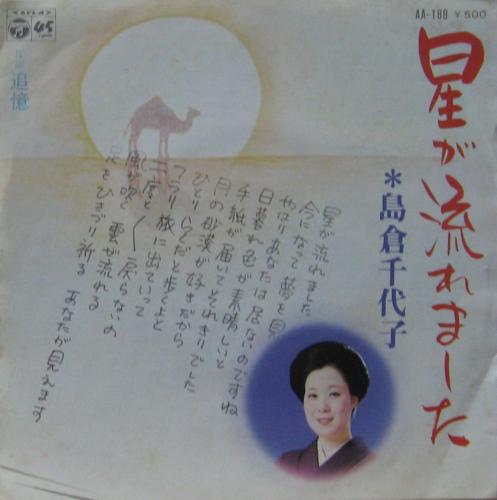 AA-169 ￥500
星が流れました
＊島倉千代子
追憶
星が流れました
今になって夢を見
やはりあなたは居ないのですね
日暮れ色が素晴しいと
手紙が届いてそれきりでした
月の砂漠が好きだから
ひとり らくだと歩くよと
フラリ旅に出ていって
二度と 戻らないの
風が吹く 雲が流れる
足をひきづり祈る あなたが見えます